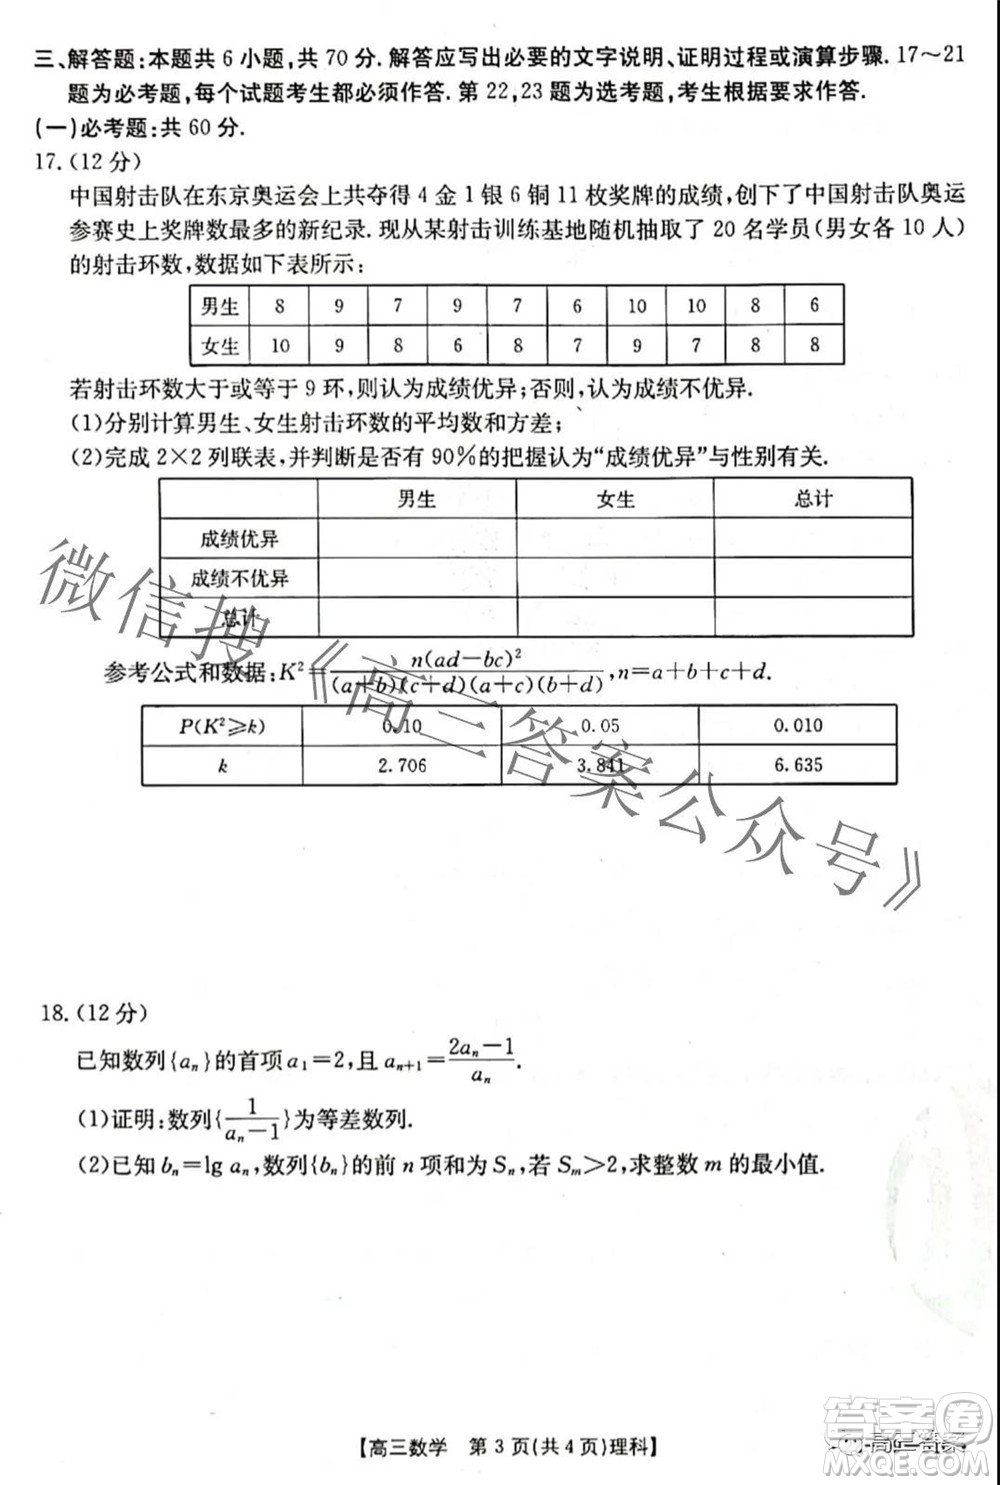 三、解答题:本题共 6 小题,共 70 分.解答应写出必要的文字说明、证明过程或演算步骤.17～21
题为必考题,每个试题考生都必须作答.第 22,23 题为选考题,考生根据要求作答.
(一)必考题:共 60 分.
17.(12 分)
中国射击队在东京奥运会上共夺得 4 金 1 银 6 铜 11 枚奖牌的成绩,创下了中国射击队奥运
参赛史上奖牌数最多的新纪录.现从某射击训练基地随机抽取了 20 名学员(男女各 10 人)
的射击环数,数据如下表所示:
男生 8 9 7 9 7 6 10 10 8 6
女生 10 9 8 6 8 7 9 7 8 8
若射击环数大于或等于 9 环,则认为成绩优异;否则,认为成绩不优异.
(1)分别计算男生、女生射击环数的平均数和方差;
(2)完成 2×2 列联表,并判断是否有 90%的把握认为“成绩优异”与性别有关.
男生 女生 总计
成绩优异
成绩不优异
总计
参考公式和数据:K²=n(ad−bc)²/(a+b)(c+d)(a+c)(b+d),n=a+b+c+d.
P(K²≥k) 0.10 0.05 0.010
k 2.706 3.841 6.635
微信搜《高三答案公众号》
18.(12 分)
已知数列{aₙ}的首项 a₁=2,且 aₙ₊₁=(2aₙ−1)/aₙ.
(1)证明:数列{1/(aₙ−1)}为等差数列.
(2)已知 bₙ=lg aₙ,数列{bₙ}的前 n 项和为 Sₙ,若 Sₘ>2,求整数 m 的最小值.
【高三数学 第 3 页(共 4 页)理科】
答案卷
高三答案
MXQE.COM